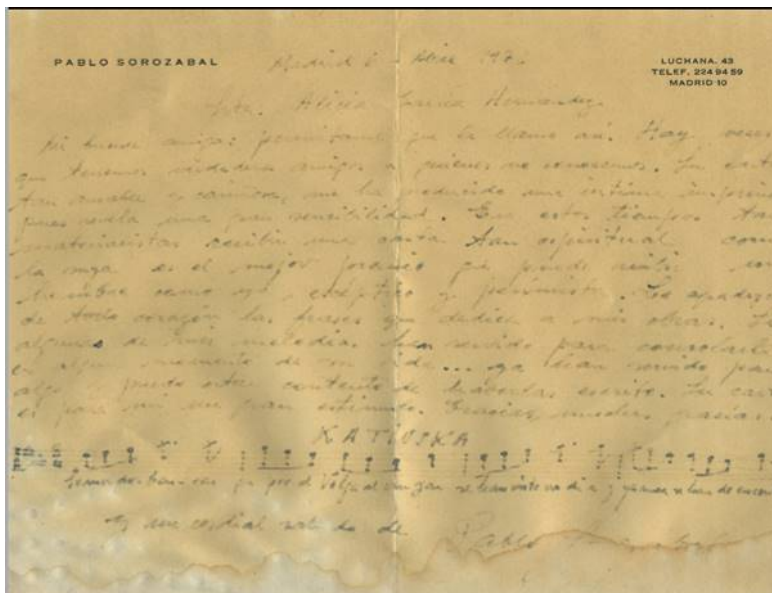 PABLO SOROZABAL
LUCHANA. 43
TELEF. 224 94 59
MADRID-10
Madrid
Srta. Alicia García Hernandez
Mi buena amiga: permítame que la llame así. Hay veces
que tenemos verdaderos amigos a quienes no conocemos. Su carta
tan amable y cariñosa, me ha producido una íntima
pues revela una gran sensibilidad. En estos tiempos tan
materialistas recibir una carta tan espiritual como
la suya es el mejor premio que puede recibir un
hombre como yo, escéptico y pesimista. Le agradezco
de todo corazon las frases que dedica a mis obras. Si
algunas de mis melodias han servido para consolarla
en algun momento de su vida... ya han servido para
algo y puedo estar contento de haberlas escrito. Su carta
es para mi un gran estímulo. Gracias, muchas gracias.
KATIUSKA
Somos dos barcas que por el Volga al
Y un cordial saludo de Pablo Sorozabal